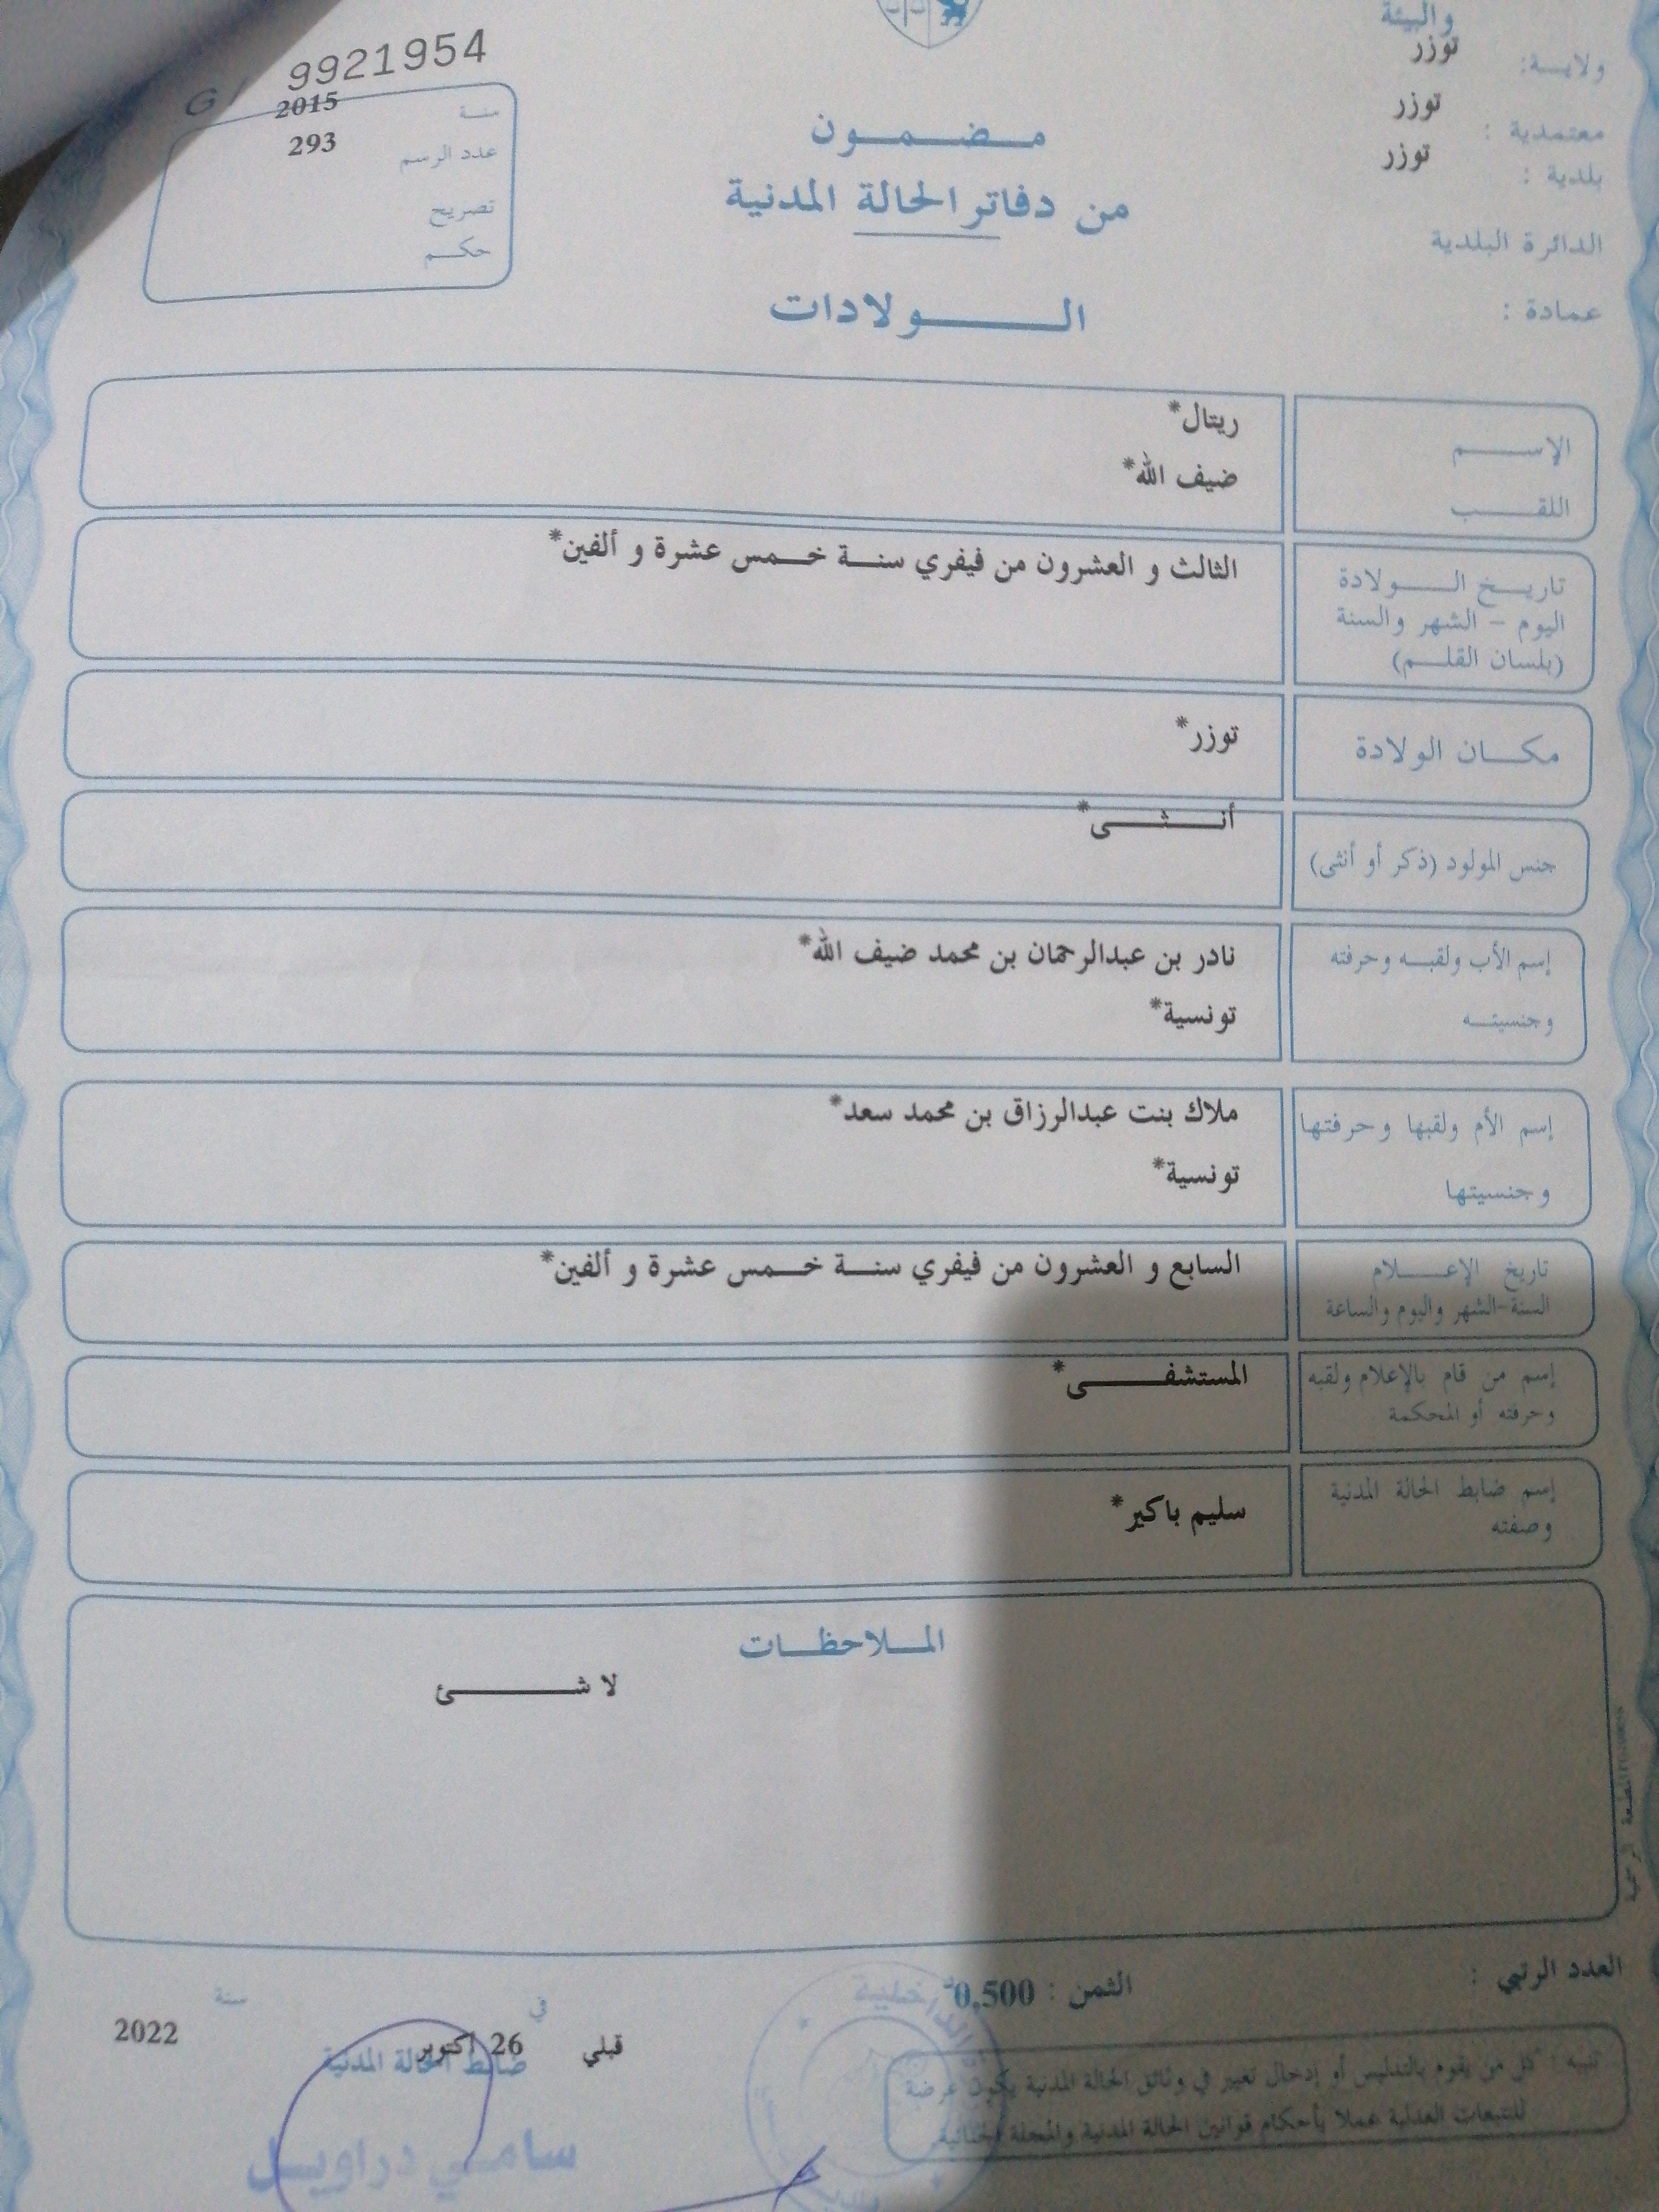 والبيئة
ولايــة: توزر
معتمدية : توزر
بلدية : توزر
الدائرة البلدية
عمادة :
G 9921954
سنة 2015
عدد الرسم 293
تصريح
حكم
مضمون
من دفاتر الحالة المدنية
الولادات
الإسم ريتال*
اللقب ضيف الله*
تاريخ الولادة الثالث و العشرون من فيفري سنة خمس عشرة و ألفين*
اليوم - الشهر والسنة
(بلسان القلم)
مكان الولادة توزر*
جنس المولود (ذكر أو أنثى) أنثى*
إسم الأب ولقبه وحرفته نادر بن عبدالرحمان بن محمد ضيف الله*
وجنسيته تونسية*
إسم الأم ولقبها وحرفتها ملاك بنت عبدالرزاق بن محمد سعد*
وجنسيتها تونسية*
تاريخ الإعلام السابع و العشرون من فيفري سنة خمس عشرة و ألفين*
السنة-الشهر واليوم والساعة
إسم من قام بالإعلام ولقبه المستشفى*
وحرفته أو المحكمة
إسم ضابط الحالة المدنية سليم باكير*
وصفته
الملاحظات
لا شئ
المطبعة الرسمية
العدد الرتبي :
الثمن : 0,500د
قبلي في 26 أكتوبر سنة 2022
ضابط الحالة المدنية
سامي دراويل
تنبيه : كل من يقوم بالتدليس أو إدخال تغيير في وثائق الحالة المدنية يكون عرضة
للتتبعات العدلية عملا بأحكام قوانين الحالة المدنية والمجلة الجنائية
الداخلية